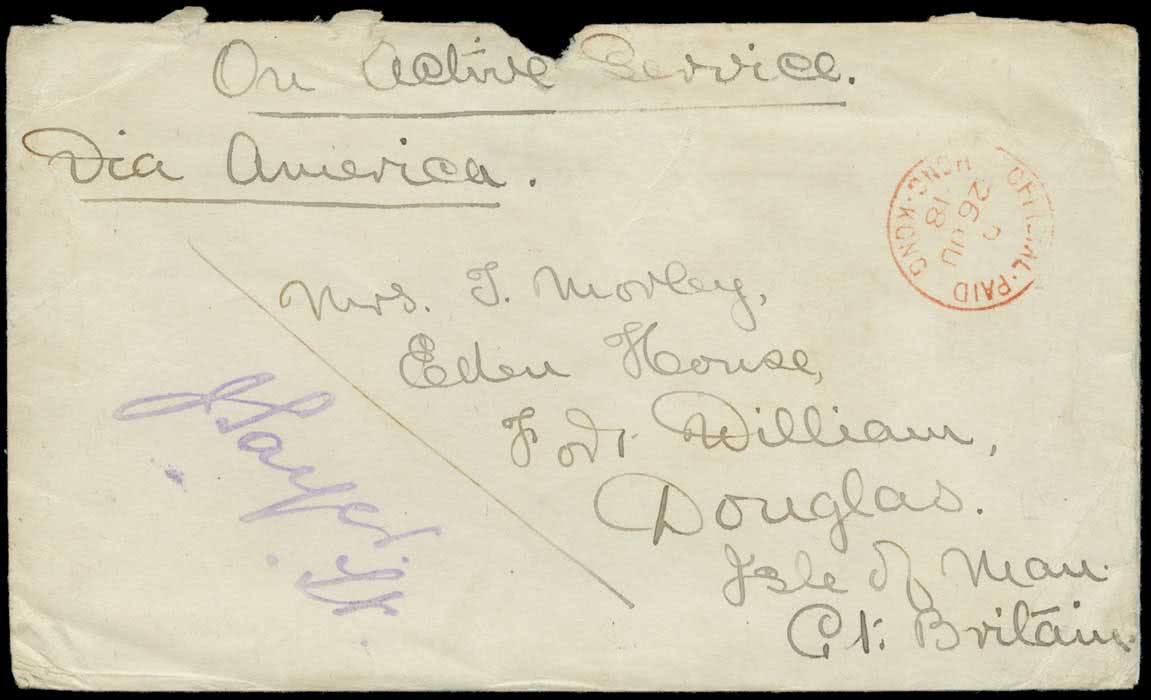 On Active Service.
Via America.
OFFICIAL·PAID
HONG·KONG
26 JU
18
Mrs. T. Morley,
Eden House,
Fort William,
Douglas.
Isle of Man.
Gt. Britain.